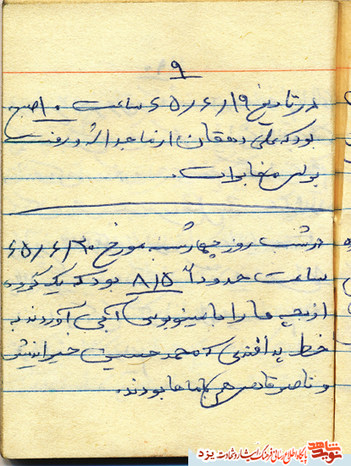 ۹
در تاریخ ۶۵/۶/۱۹ ساعت ۱۰ صبح
بود که علی دهقان از ما جدا شد و رفت
برای مخابرات.
در شب روز چهارشنبه مورخ ۶۵/۶/۲۰
ساعت حدوداً ۸/۵ بود که یک گروه
از بچه ها را با مینی بوس آوردند به
خط پدافندی که محمد حسین
و ناصر هم با ما بودند.
نوید شاهد
پایگاه اطلاع رسانی فرهنگ ایثار و شهادت یزد